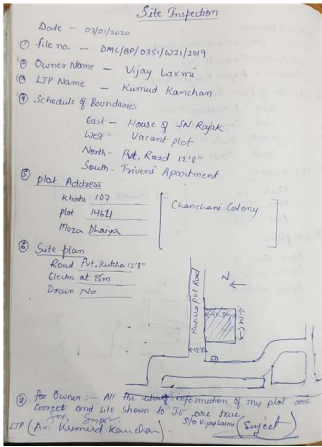 Site Inspection
Date - 07/01/2020
① file no. - DMC/BP/0351/W21/2019
② Owner Name - Vijay Laxmi
③ LTP Name - Kumud Kanchan
④ Schedule of Boundaries
East - House of SN Rajak
West - Vacant plot
North - Pvt. Road 12'8"
South - Triveni Apartment
⑤ plot Address
Khata 107
plot
Moza Dhaiya
Chanchani Colony
⑥ Site plan
Road Pvt. Kutcha 12'8"
Electric at 75m
Drain No
N
Kutcha Pvt Road
⑦ for Owner :- All the information of my plot are
correct and site shown to JE are true
S/o Vijay Laxmi (Surjeet)
LTP (Ar. Kumud Kanchan)